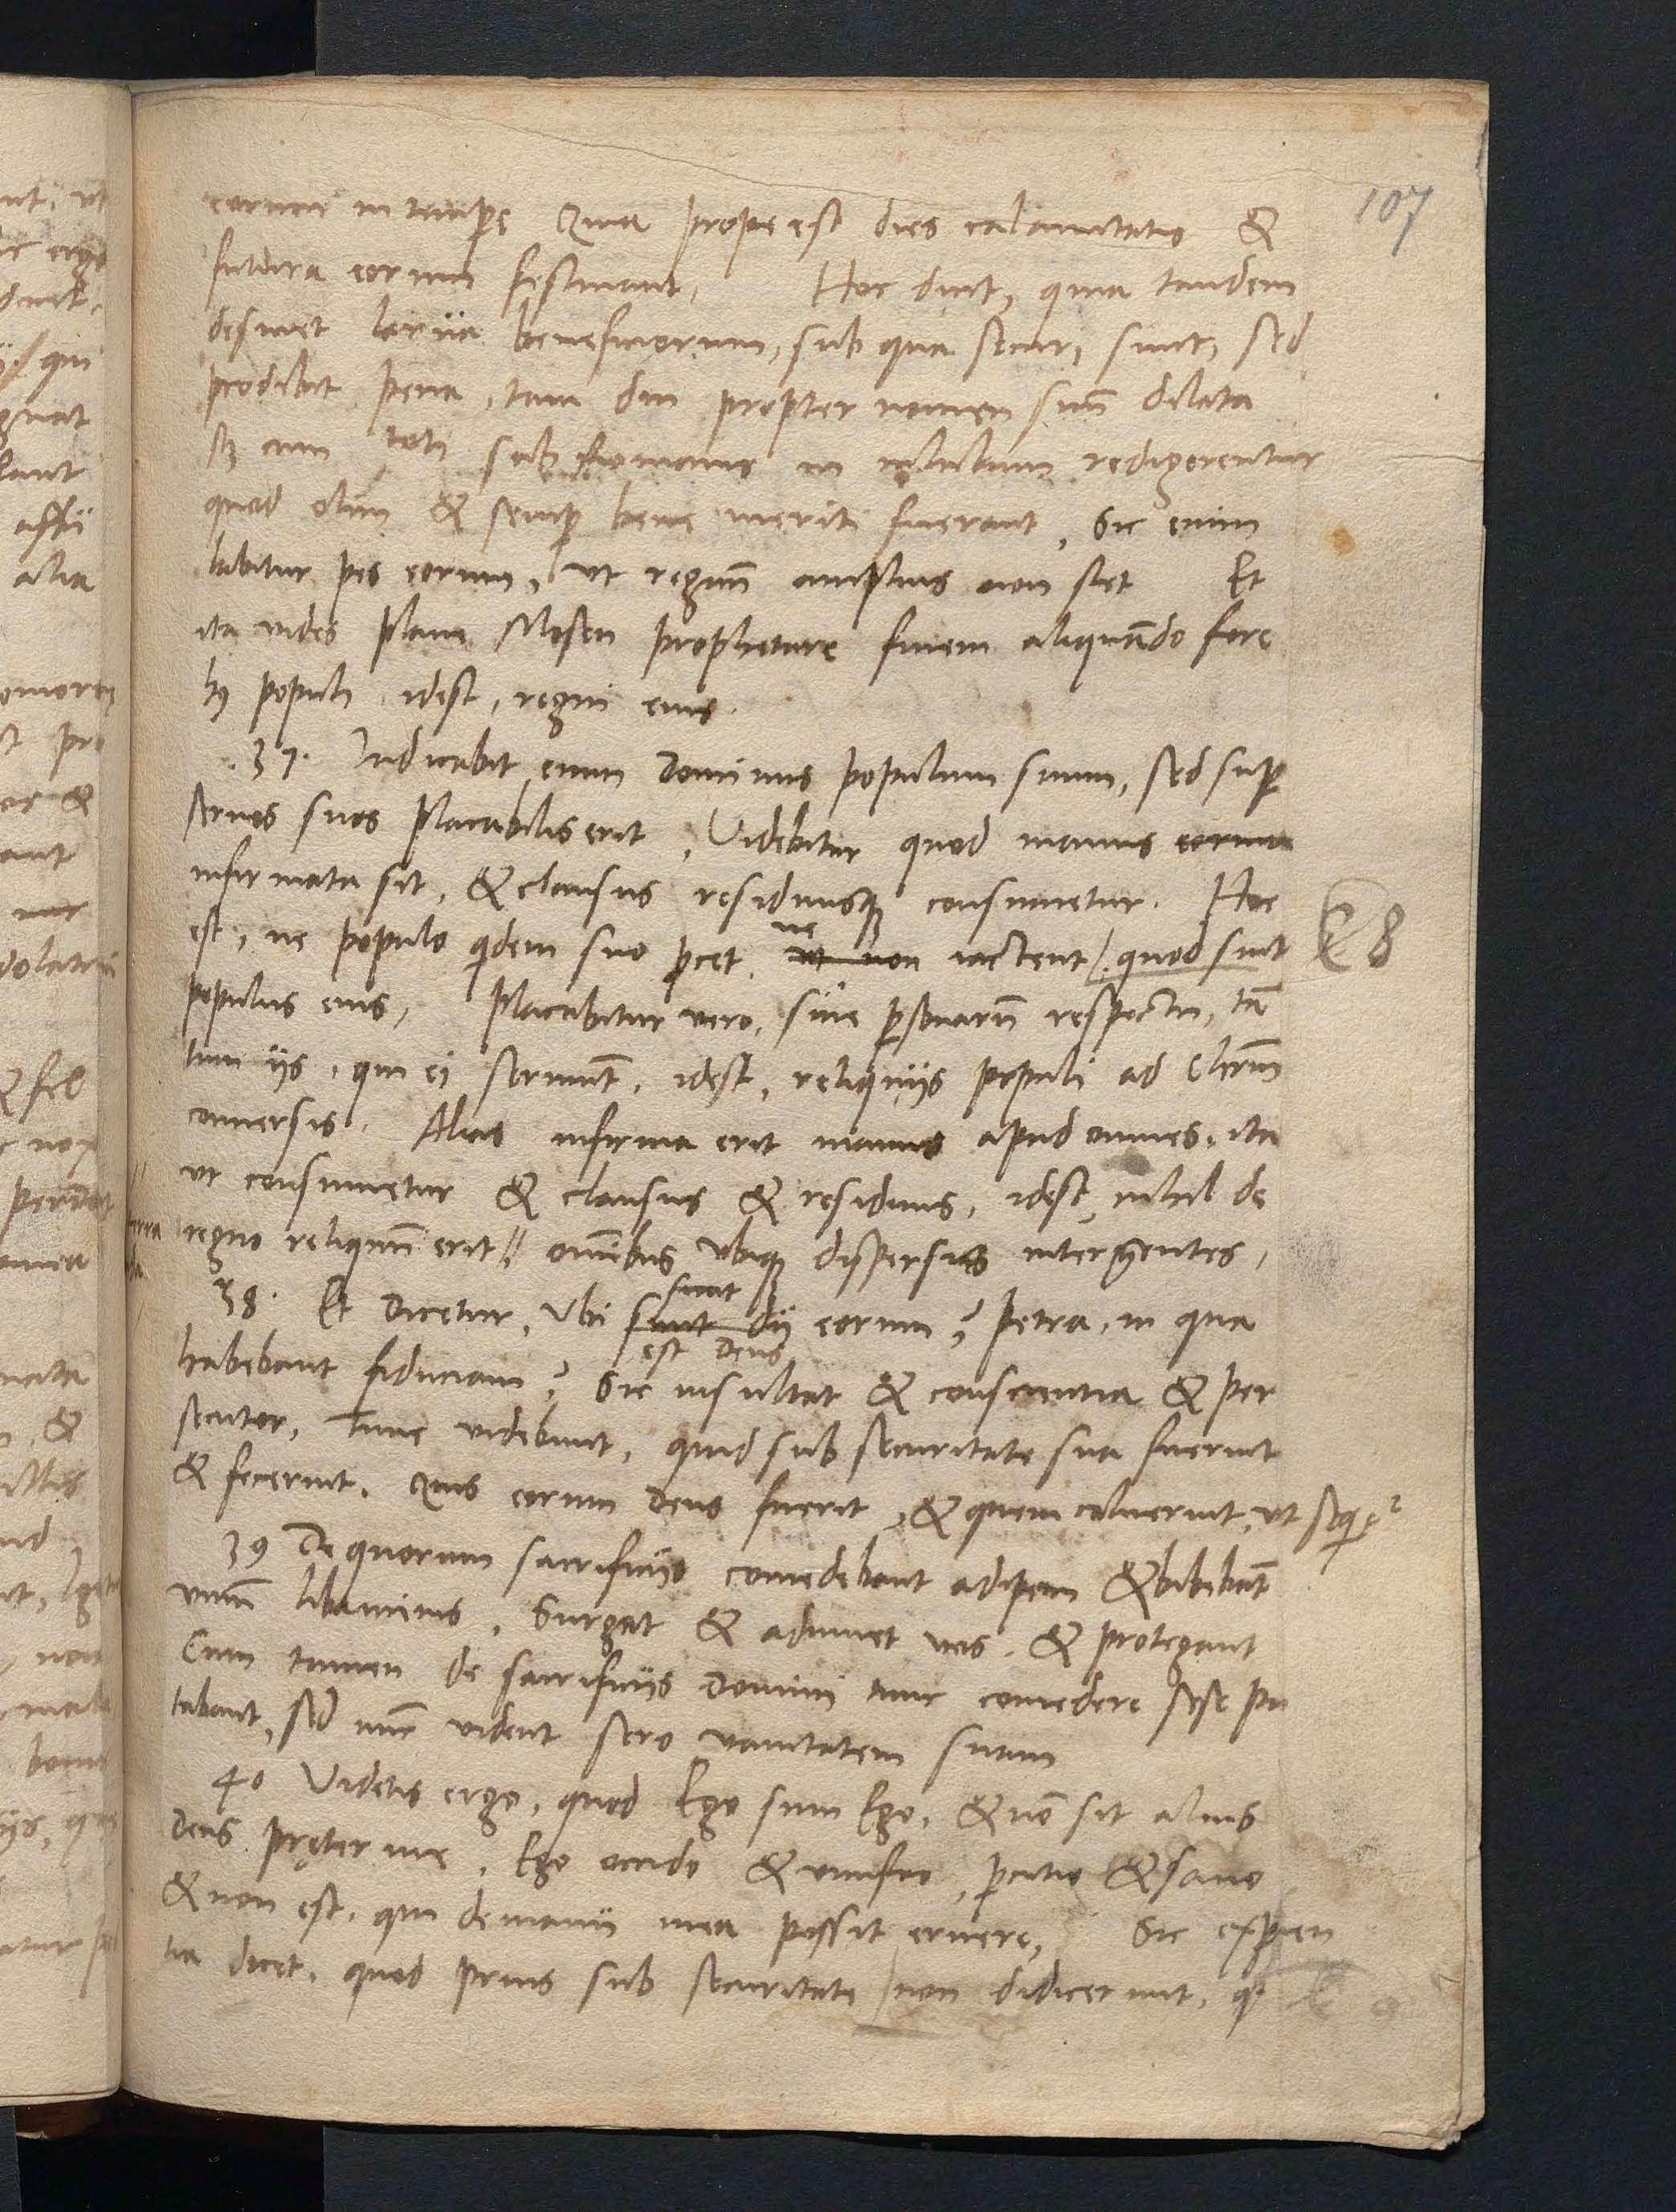 107
eorum in tempe Quia prope est dies calamitatis &
futura eorum festinant. Hoc dicit, quia tandem
desinet larua beneficiorum, sub qua securi sunt, sed
prodibit pena, tam diu propter nomen suū dilata
sz cum toti sub Romanis in nihilum redigerentur
quod olim & semp bene meriti fuerant, Sic enim
labitur pes eorum, ut regnū amplius non stet Et
ita vides plane Mosen prophetare finem aliquādo fore
hꝰ populi idest, regni eius.
.37. Iudicabit enim Dominus populum suum, sed sup
seruos suos placabilis erit, Videbitur quod manus eorum
infirmata sit, & clausus residuusqȝ consumetur. Hoc
est, ne populo qdem suo pcet, ut non ne iactent /. quod sint
E 8
populus eius, Placabitur vero, sine psonarū respectu, tā
tum iis, qui ei seruiūt, idest, reliquiis populi ad Chrm̄
conuersis. Alias infirma erit manus apud omnes, ita
ut consumetur & clausus & residuus, idest, nihil de
regno reliquū erit // omībus ubiqȝ dispersis inter gentes,
38. Et Dicetur, Vbi sunt sunt dii eorum? Petra, in qua
est Deus
habebant fiduciam? Sic insultat & conscientia & per
secutor, Tunc videbunt, quid sub securitate sua fuerint
& fecerint. Quis eorum Deus fuerit, & quem coluerint, ut seqr
39 De quorum sacrificiis comedebant adipem & bibebāt
vinū libaminis, Surgat & adiuuet uos. & protegant
Cum tamen de sacrificiis Domini tunc comedere sese pu
tabant, sed nūc vident sero vanitatem suam
40 Videtis ergo, quod Ego sum Ego, & nō sit alius
Deus pręter me, Ego occido & viuifico, pcutio & sano
& non est, qui de manu mea possit eruere, Sic expien
tia dicet, quod prius sub securitate / non didicerunt, q